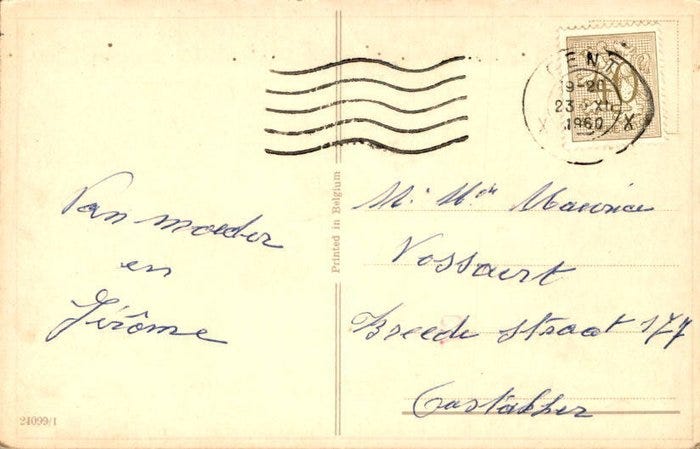 Van moeder
en
Jérôme
24099/1
Printed in Belgium
GENT
19-20
23 XII
1960
X X
M. Mde Maurice
Vossaert
Breede straat 177
Oostakker